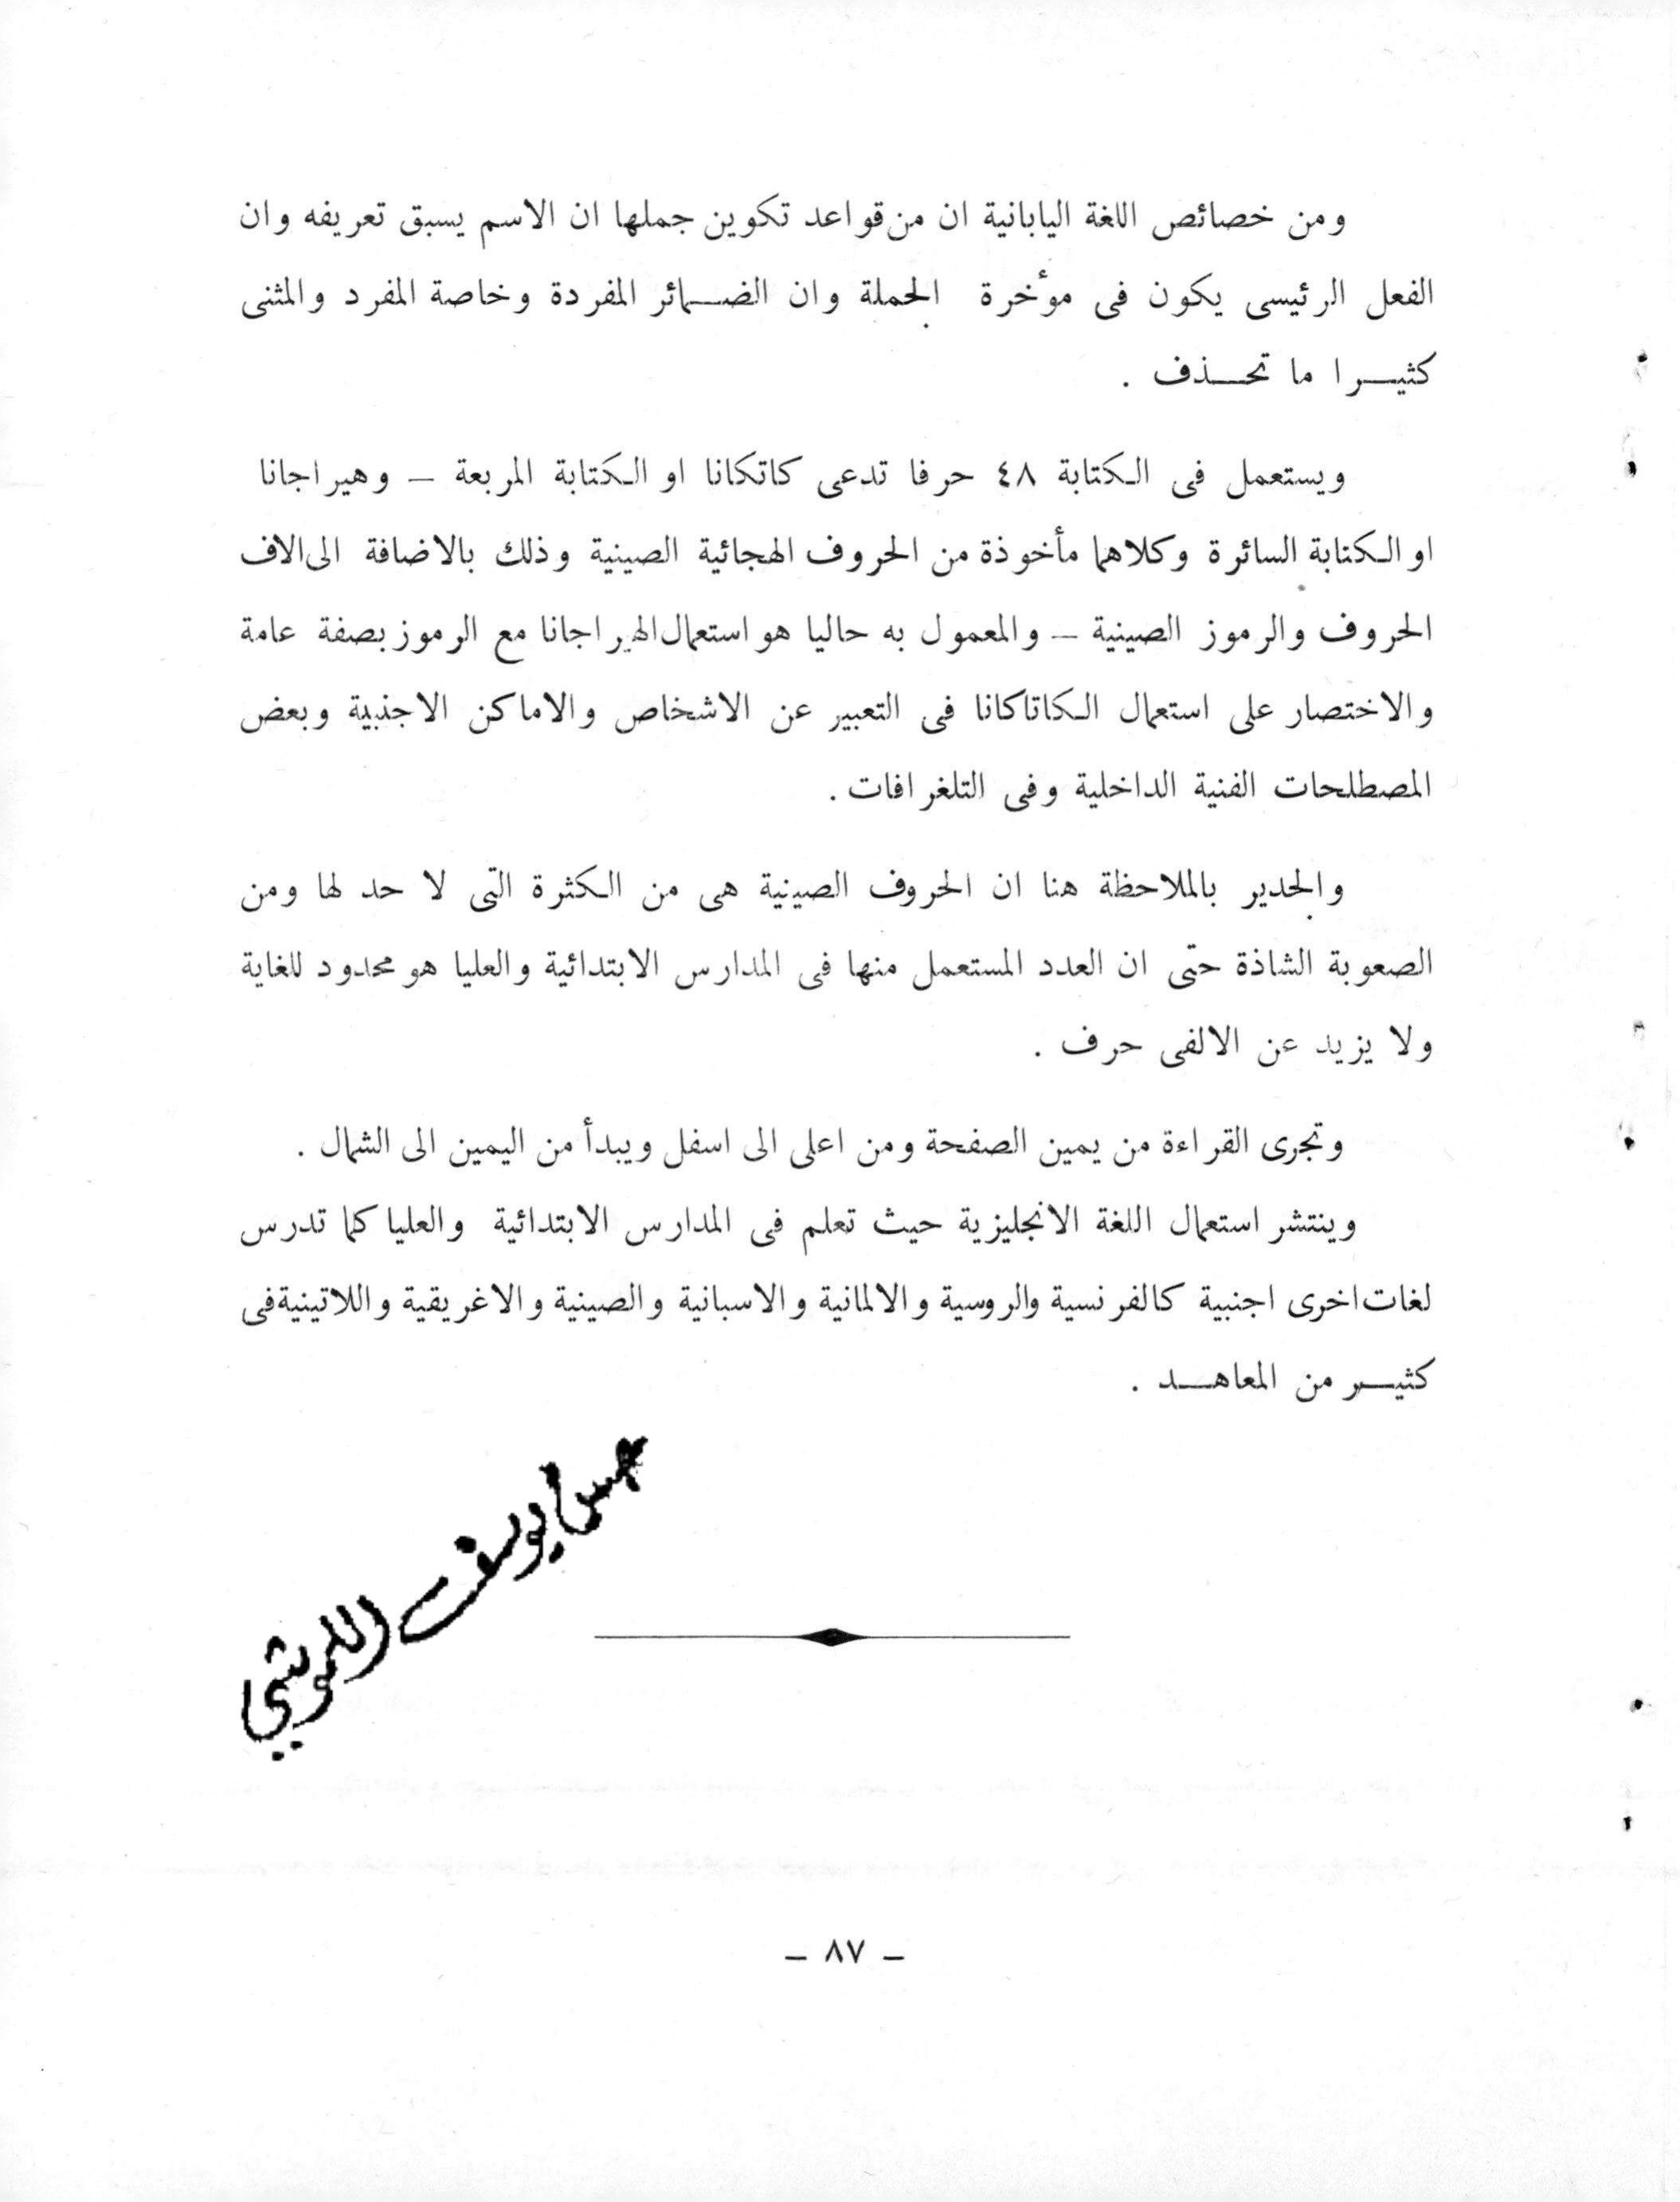 ومن خصائص اللغة اليابانية ان من قواعد تكوين جملها ان الاسم يسبق تعريفه وان
الفعل الرئيسى يكون فى موٴخرة الجملة وان الضمائر المفردة وخاصة المفرد والمثنى
كثيرا ما تحذف .
ويستعمل فى الكتابة ٤٨ حرفا تدعى كاتكانا او الكتابة المربعة – وهيراجانا
او الكتابة السائرة وكلاهما مأخوذة من الحروف الهجائية الصينية وذلك بالاضافة الى الاف
الحروف والرموز الصينية – والمعمول به حاليا هو استعمال الهيراجانا مع الرموز بصفة عامة
والاختصار على استعمال الكاتاكانا فى التعبير عن الاشخاص والاماكن الاجنبية وبعض
المصطلحات الفنية الداخلية وفى التلغرافات .
والجدير بالملاحظة هنا ان الحروف الصينية هى من الكثرة التى لا حد لها ومن
الصعوبة الشاذة حتى ان العدد المستعمل منها فى المدارس الابتدائية والعليا هو محدود للغاية
ولا يزيد عن الالفى حرف .
وتجرى القراءة من يمين الصفحة ومن اعلى الى اسفل ويبدأ من اليمين الى الشمال .
وينتشر استعمال اللغة الانجليزية حيث تعلم فى المدارس الابتدائية والعليا كما تدرس
لغات اخرى اجنبية كالفرنسية والروسية والالمانية والاسبانية والصينية والاغريقية واللاتينية فى
كثير من المعاهد .
يوسف
– ٨٧ –